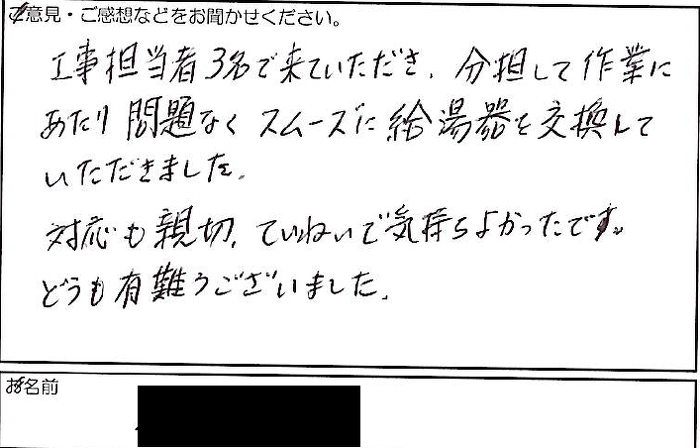 ご意見・ご感想などをお聞かせください。
工事担当者3名で来ていただき、分担して作業に
あたり問題なくスムーズに給湯器を交換して
いただきました。
対応も親切、ていねいで気持ちよかったです。
どうも有難うございました。
お名前